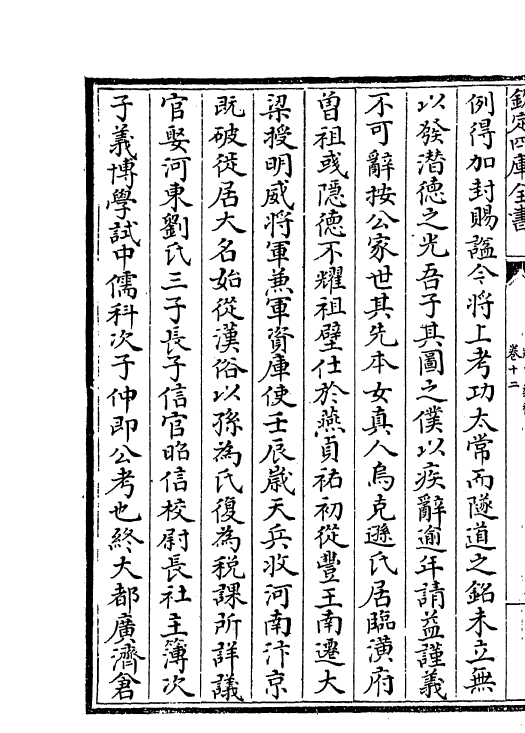 欽定四庫全書
卷十二
例得加封賜謚今將上考功太常而隧道之銘未立無
以發潛德之光吾子其圖之僕以疾辭逾年請益謹義
不可辭按公家世其先本女真人烏克遜氏居臨潢府
曾祖彧隱德不耀祖璧仕於燕貞祐初從豐王南遷大
梁授明威將軍兼軍資庫使壬辰嵗天兵收河南汴京
既破徙居大名始從漢俗以孫為氏復為税課所詳議
官娶河東劉氏三子長子信官昭信校尉長社主簿次
子義博學試中儒科次子仲即公考也終大都廣濟倉